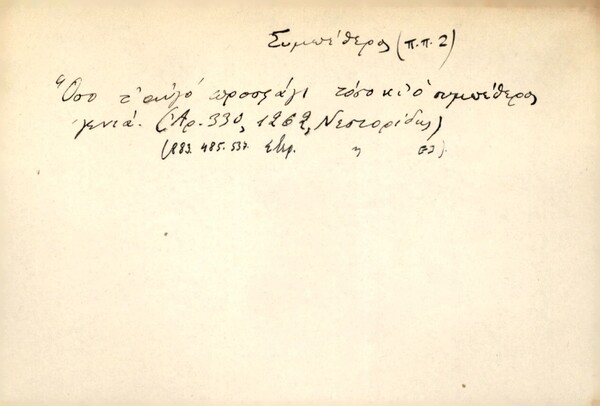 Συμπέθερος (π.π. 2)
Ὅσο τ' αὐγό προσφάγι τόσο κι ὁ συμπέθερος
γενιά. (Ἀρ. 330, 1262, Νεστορίδης)
(883. 485. 537.